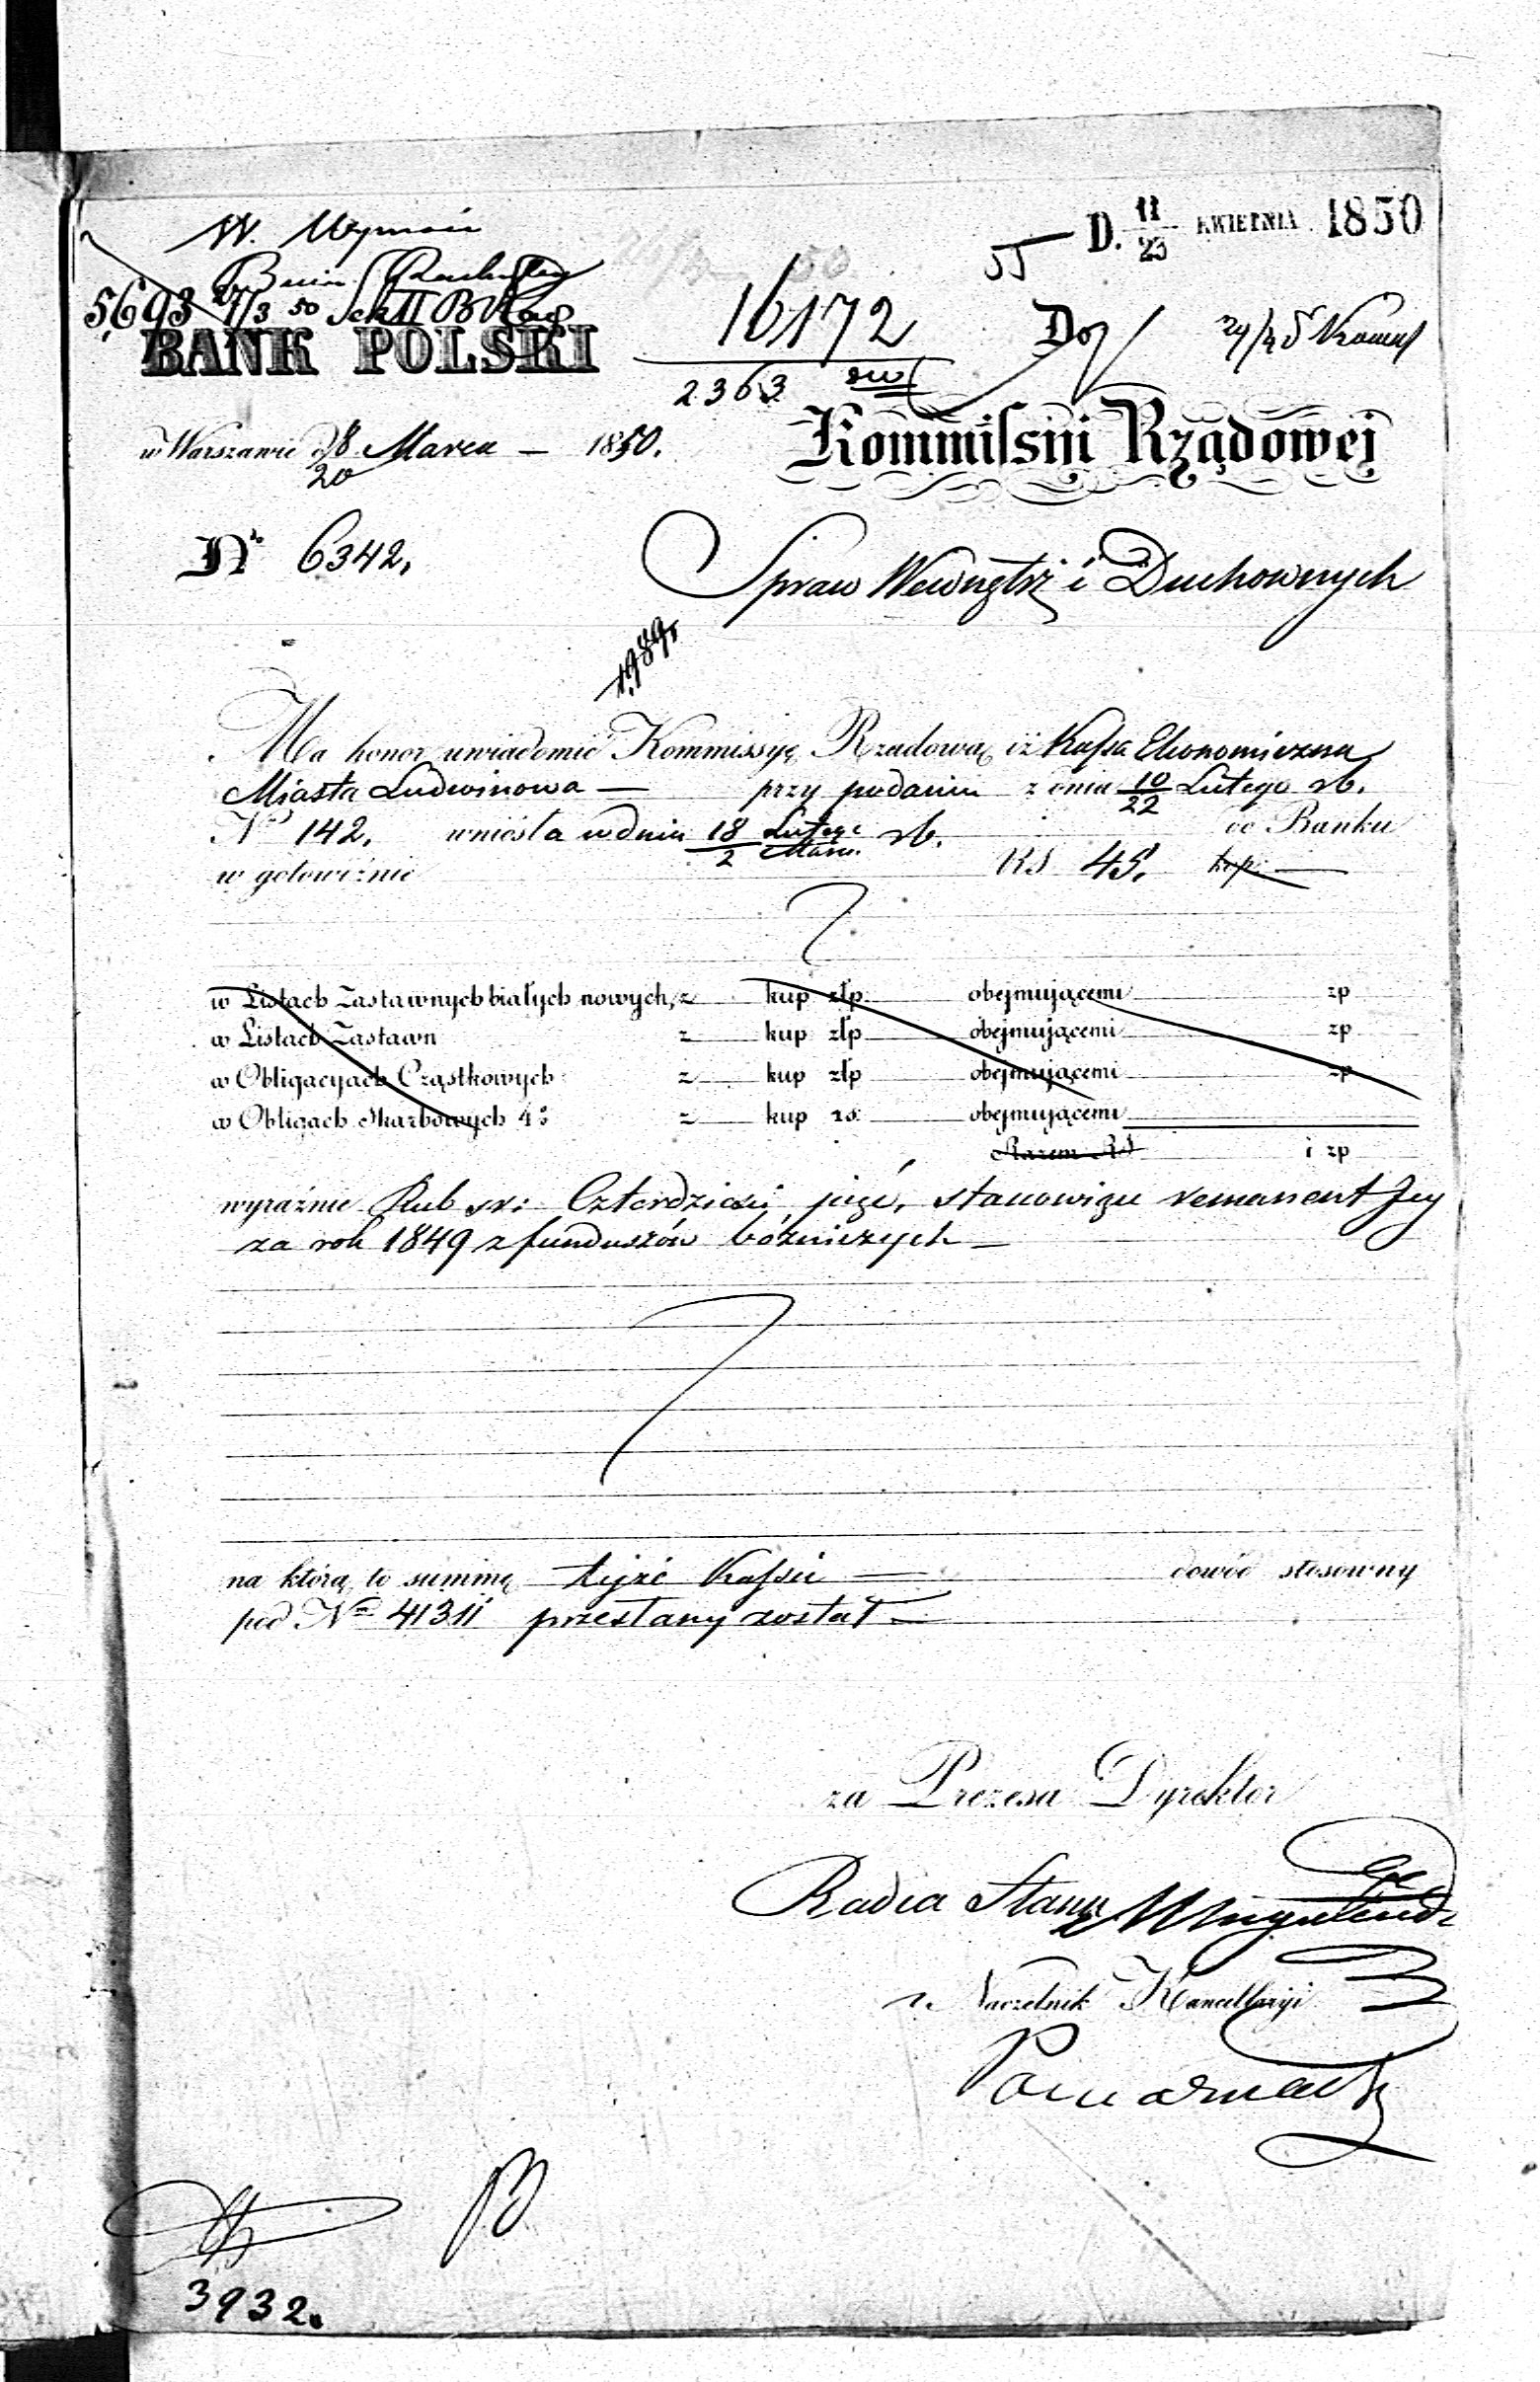 55 D. 11/23 KWIETNIA 1850
5693
BANK POLSKI
16172
2363
Do
w Warszawie d 8/20 Marca — 1850.
Kommissyi Rządowej
Nr 6342.
Spraw Wewnętrz i Duchownych
1989.
Ma honor uwiadomić Kommissyę Rządową iż Kassa Ekonomiczna
Miasta Ludwinowa — przy podaniu z dnia 10/22 Lutego rb.
No 142. wniosła w dniu 18 Lutego/2 Marca rb. do Banku
w gotowiźnie RS 45. kop —
w Listach Zastawnych białych nowych, z kup złp. obejmującemi zp
w Listach Zastawn z kup złp obejmującemi zp
w Obligacyach Cząstkowych z kup złp obejmującemi zp
w Obligach Skarbowych 4% z kup rs. obejmującemi
Razem RS i zp
wyraźnie Rub sr: Czterdzieści pięć, stanowiące remanent Jey
za rok 1849 z funduszów bóżniczych —
na którą to summę tejże Kassie — dowód stosowny
pod Nm 41311 przesłany został —
za Prezesa Dyrektor
Radca Stanu
z. Naczelnik Kancellaryi
3932.